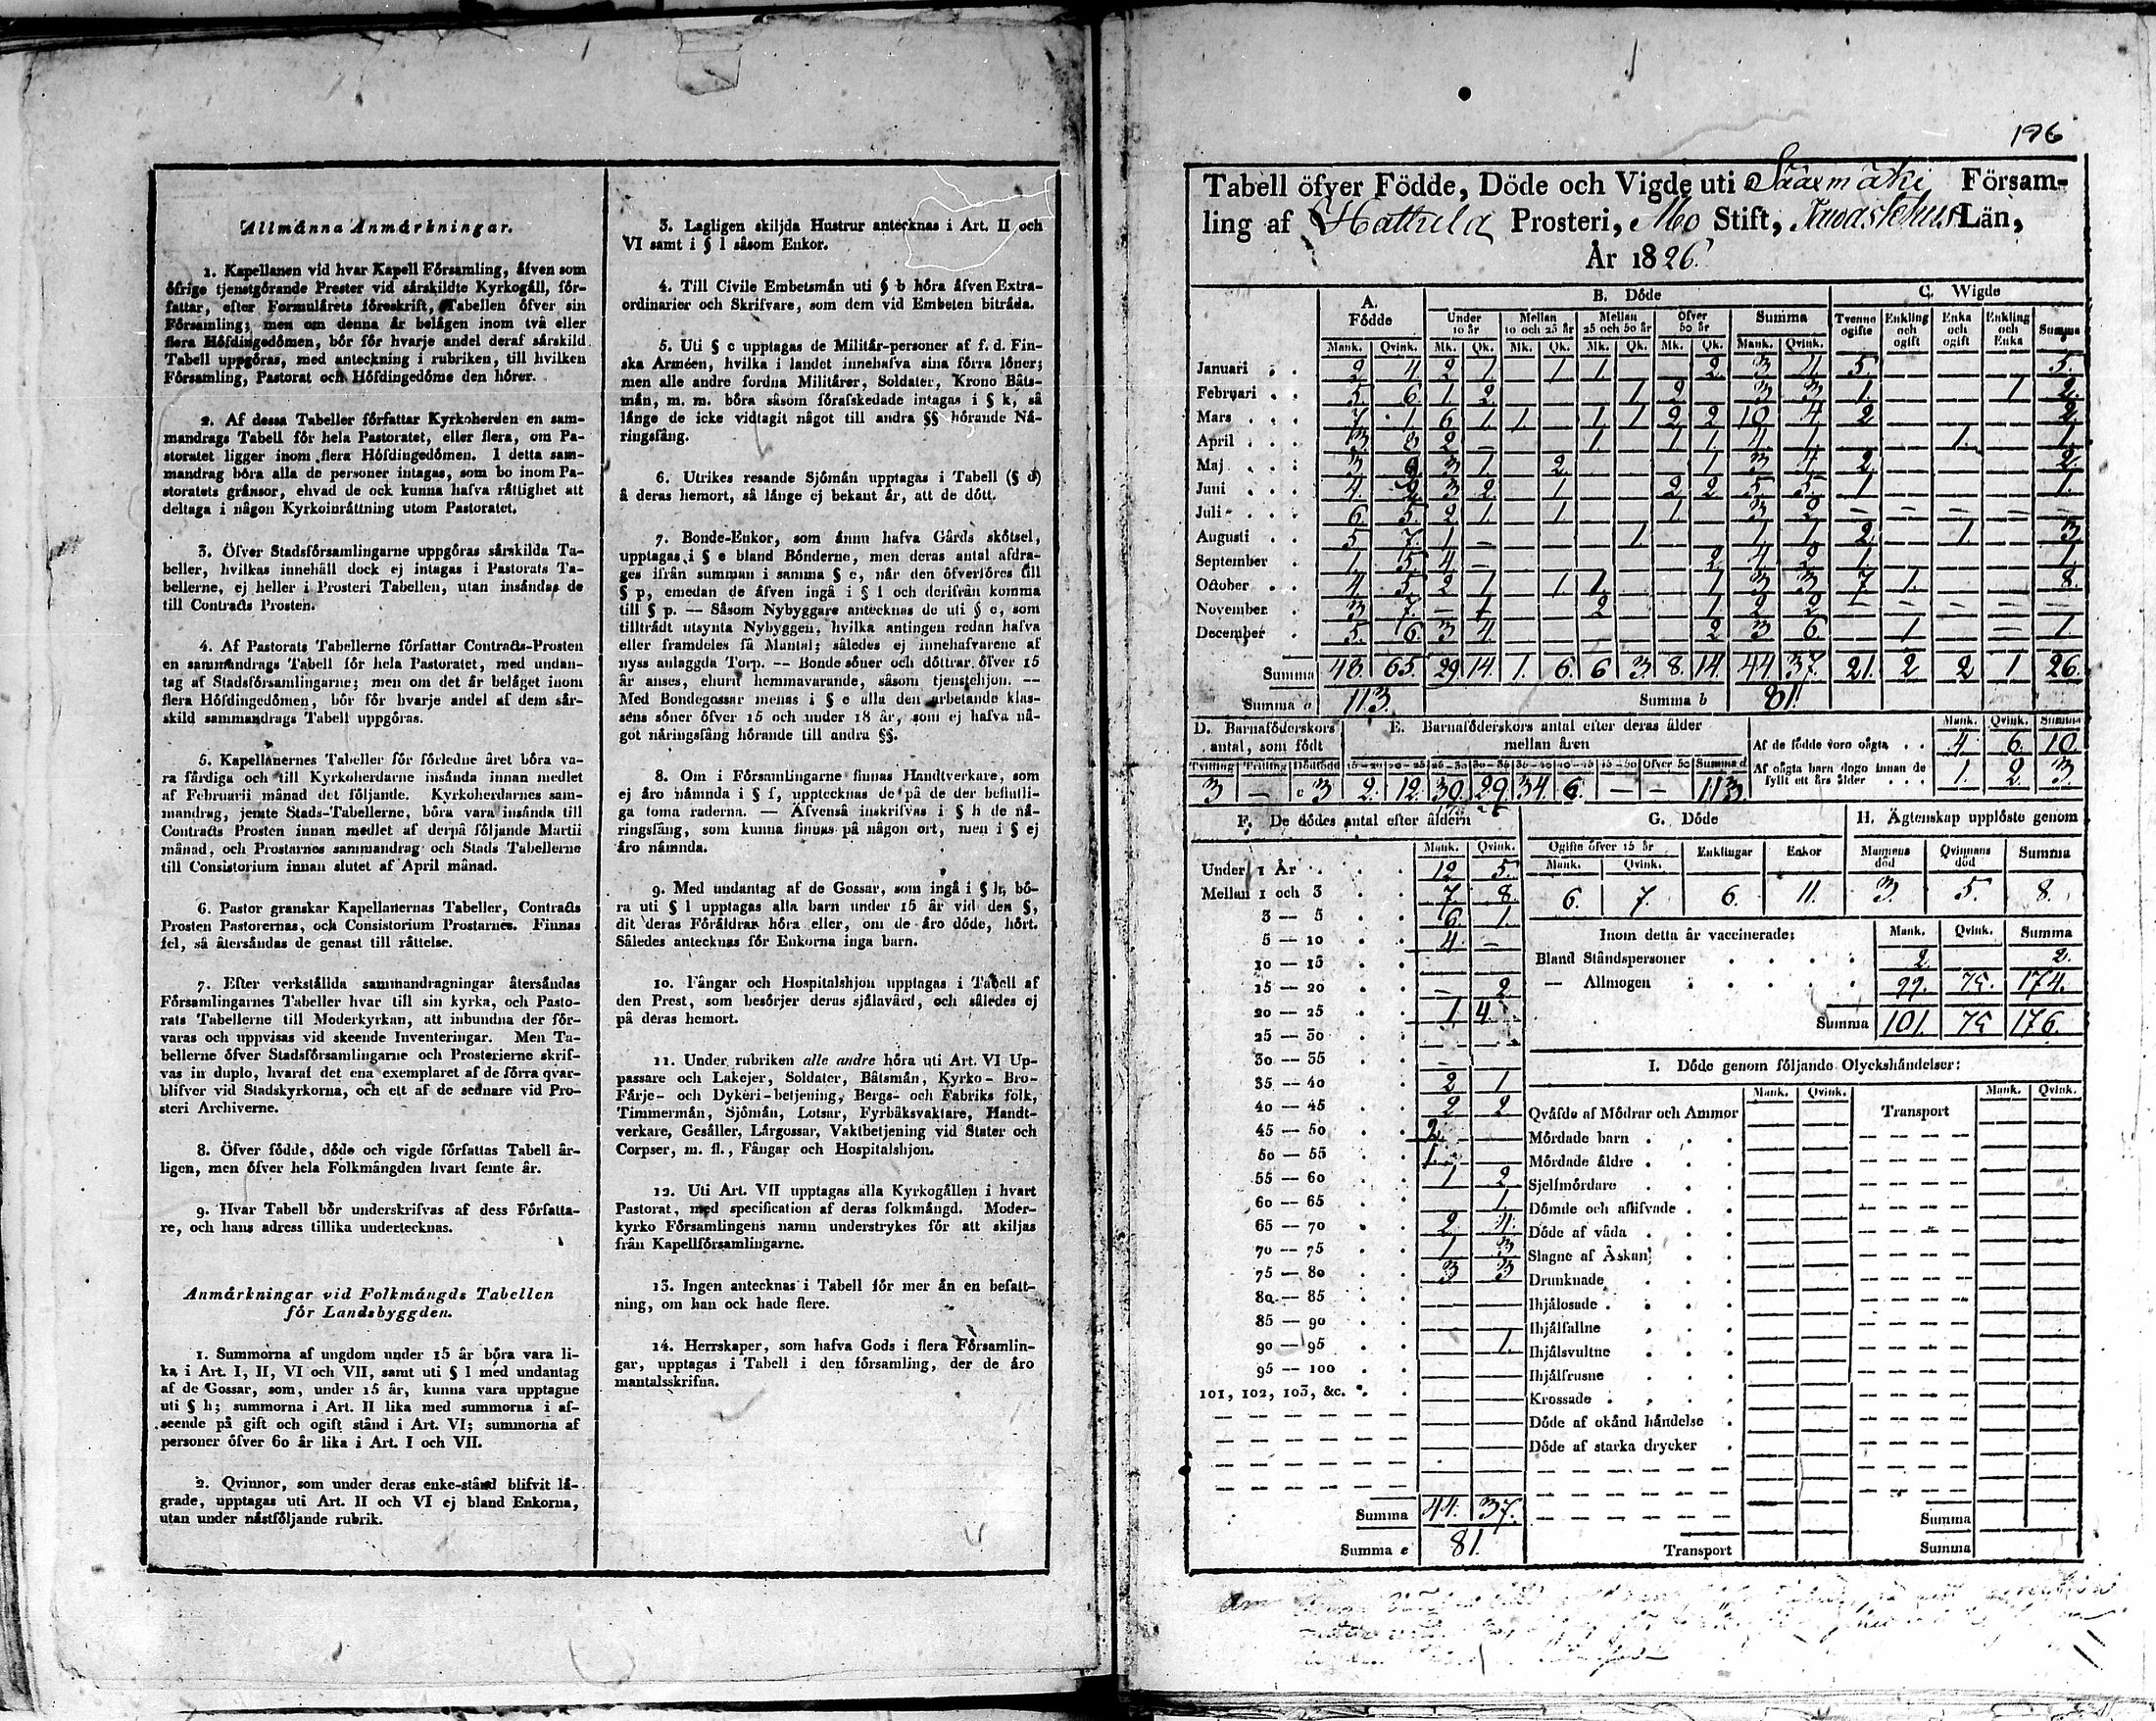 Allmånna Anmårkningar.
1. Kapellanen vid hvar Kapell Församling, åfven som
öfrige tjenstgörande Prester vid särskildte Kyrkogåll, för-
fattar, efter Formulårets föreskrift, Tabellen öfver sin
Församling; men om denna är belågen inom två eller
flera Höfdingedömen, bör för hvarje andel deraf särskild
Tabell uppgöras, med anteckning i rubriken, till hvilken
Församling, Pastorat och Höfdingedöme den hörer.
2. Af dessa Tabeller författar Kyrkoherden en sam-
mandrags Tabell för hela Pastoratet, eller flera, om Pa-
storatet ligger inom flera Höfdingedömen. I detta sam-
mandrag böra alla de personer intagas, som bo inom Pa-
storatets grånsor, ehvad de ock kunna hafva råttighet att
deltaga i någon Kyrkoinråttning utom Pastoratet.
3. Öfver Stadsförsamlingarne uppgöras särskilda Ta-
beller, hvilkas innehåll dock ej intagas i Pastorats Ta-
bellerne, ej heller i Prosteri Tabellen, utan insåndas de
till Contracts Prosten.
4. Af Pastorats Tabellerne författar Contracts-Prosten
en sammandrags Tabell för hela Pastoratet, med undan-
tag af Stadsförsamlingarne; men om det år belåget inom
flera Höfdingedömen, bör för hvarje andel af dem sär-
skild sammandrags Tabell uppgöras.
5. Kapellanernes Tabeller för förledne året böra va-
ra fårdiga och till Kyrkoherdarne insånda innan medlet
af Februarii månad det följande. Kyrkoherdarnes sam-
mandrag, jemte Stads-Tabellerne, böra vara insånda till
Contracts Prosten innan medlet af derpå följande Martii
månad, och Prostarnes sammandrag och Stads Tabellerne
till Consistorium innan slutet af April månad.
6. Pastor granskar Kapellanernas Tabeller, Contracts
Prosten Pastorernas, och Consistorium Prostarnes. Finnas
fel, så återsåndas de genast till råttelse.
7. Efter verkstållda sammandragningar återsåndas
Församlingarnes Tabeller hvar till sin kyrka, och Pasto-
rats Tabellerne till Moderkyrkan, att inbundna der för-
varas och uppvisas vid skeende Inventeringar. Men Ta-
bellerne öfver Stadsförsamlingarne och Prosterierne skrif-
vas in duplo, hvaraf det ena exemplaret af de förra qvar-
blifver vid Stadskyrkorna, och ett af de sednare vid Pro-
steri Archiverne.
8. Öfver födde, döde och vigde författas Tabell år-
ligen, men öfver hela Folkmångden hvart femte år.
9. Hvar Tabell bör underskrifvas af dess Författa-
re, och hans adress tillika undertecknas.
Anmårkningar vid Folkmångds Tabellen
för Landsbyggden.
1. Summorna af ungdom under 15 år böra vara li-
ka i Art. I, II, VI och VII, samt uti § l med undantag
af de Gossar, som, under 15 år, kunna vara upptagne
uti § h; summorna i Art. II lika med summorna i af-
seende på gift och ogift stånd i Art. VI; summorna af
personer öfver 60 år lika i Art. I och VII.
2. Qvinnor, som under deras enke-stånd blifvit lå-
grade, upptagas uti Art. II och VI ej bland Enkorna,
utan under nåstföljande rubrik.
3. Lagligen skiljda Hustrur antecknas i Art. II och
VI samt i § l såsom Enkor.
4. Till Civile Embetsmån uti § b höra åfven Extra-
ordinarier och Skrifvare, som dem vid Embeten bitråda.
5. Uti § c upptagas de Militår-personer af f. d. Fin-
ska Arméen, hvilka i landet innehafva sina förra löner;
men alle andre fordna Militårer, Soldater, Krono Båts-
mån, m. m. böra såsom förafskedade intagas i § k, så
långe de icke vidtagit något till andra §§ hörande Nå-
ringsfång.
6. Utrikes resande Sjömån upptagas i Tabell (§ d)
å deras hemort, så långe ej bekant år, att de dött.
7. Bonde-Enkor, som ånnu hafva Gårds skötsel,
upptagas i § e bland Bönderne, men deras antal afdra-
ges ifrån summan i samma § e, når den öfverföres till
§ p, emedan de åfven ingå i § l och derifrån komma
till § p. — Såsom Nybyggare antecknas de uti § e, som
tilltrådt utsynta Nybyggen, hvilka antingen redan hafva
eller framdeles få Mantal; således ej innehafvarene af
nyss anlaggda Torp. — Bonde söner och döttrar öfver 15
år anses, ehuru hemmavarande, såsom tjenstehjon. —
Med Bondegossar menas i § e alla den arbetande klas-
sens söner öfver 15 och under 18 år, som ej hafva nå-
got nåringsfång hörande till andra §§.
8. Om i Församlingarne finnas Handtverkare, som
ej åro nåmnda i § f, upptecknas de på de der befintli-
ga toma raderna. — Åfvenså inskrifvas i § h de nå-
ringsfång, som kunna finnas på någon ort, men i § ej
åro nåmnda.
9. Med undantag af de Gossar, som ingå i § h, bö-
ra uti § l upptagas alla barn under 15 år vid den §,
dit deras Föråldrar höra eller, om de åro döde, hört.
Således antecknas för Enkorna inga barn.
10. Fångar och Hospitalshjon upptagas i Tabell af
den Prest, som besörjer deras sjålavård, och således ej
på deras hemort.
11. Under rubriken alle andre höra uti Art. VI Up-
passare och Lakejer, Soldater, Båtsmån, Kyrko- Bro-
Fårje- och Dykeri-betjening, Bergs- och Fabriks folk,
Timmermån, Sjömån, Lotsar, Fyrbåksvaktare, Handt-
verkare, Gesåller, Lårgossar, Vaktbetjening vid Stater och
Corpser, m. fl., Fångar och Hospitalshjon.
12. Uti Art. VII upptagas alla Kyrkogållen i hvart
Pastorat, med specification af deras folkmångd. Moder-
kyrko Församlingens namn understrykes för att skiljas
från Kapellförsamlingarne.
13. Ingen antecknas i Tabell för mer ån en befatt-
ning, om han ock hade flere.
14. Herrskaper, som hafva Gods i flera Församlin-
gar, upptagas i Tabell i den församling, der de åro
mantalsskrifna.
196
Tabell öfver Födde, Döde och Vigde uti Sääxmäki Försam-
ling af Hattula Prosteri, Åbo Stift, Tavastehus Län,
År 1826.
A. Födde B. Döde C. Wigde
Under 10 år Mellan 10 och 25 år Mellan 25 och 50 år Öfver 50 år Summa Tvenne ogifte Enkling och ogift Enka och ogift Enkling och Enka Summa
Mank. Qvink. Mk. Qk. Mk. Qk. Mk. Qk. Mk. Qk. Mank. Qvink.
Januari 2 4 2 1 1 1 2 3 4 5 5
Februari 5 6 1 2 1 2 3 3 1 1 2
Mars 7 1 6 1 1 1 1 2 2 10 4 2 2
April 3 2 2 — 1 1 1 4 1 1 1
Maj 3 2 3 1 2 1 3 4 2 2
Juni 4 2 3 2 1 2 2 5 5 1 1
Juli 6 5 2 1 1 1 3 2 — — — — —
Augusti 5 7 1 — 1 1 1 2 1 3
September 1 5 4 — 2 4 2 1 1
October 4 5 2 1 1 1 1 3 3 7 1 8
November 3 7 — 1 2 1 2 2 — — — — —
December 5 6 3 4 2 3 6 1 — 1
Summa 48 65 29 14 1 6 6 3 8 14 44 37 21 2 2 1 26
Summa a 113 Summa b 81
D. Barnaföderskors antal, som födt
E. Barnaföderskors antal efter deras ålder mellan åren
Tvilling Trilling Dödfödd 15-20 20-25 25-30 30-35 35-40 40-45 45-50 Öfver 50 Summa d
3 — 3 2 12 30 29 34 6 — — 113
Mank. Qvink. Summa
Af de födde voro oägta 4 6 10
Af oägta barn dogo innan de
fyllt ett års ålder 1 2 3
F. De dödes antal efter åldern
Mank. Qvink.
Under 1 År 12 5
Mellan 1 och 3 7 8
3 — 5 6 1
5 — 10 4 —
10 — 15
15 — 20 — 2
20 — 25 1 4
25 — 30
30 — 35
35 — 40 2 1
40 — 45 2 2
45 — 50 2
50 — 55 1
55 — 60 1 2
60 — 65 1
65 — 70 2 4
70 — 75 1 3
75 — 80 3 3
80 — 85
85 — 90
90 — 95 1
95 — 100
101, 102, 103, &c.
Summa 44 37
Summa e 81
G. Döde
Ogifte öfver 15 år Enklingar Enkor
Mank. Qvink.
6 7 6 11
H. Ägtenskap upplöste genom
Mannens död Qvinnans död Summa
3 5 8
Inom detta år vaccinerade; Mank. Qvink. Summa
Bland Ståndspersoner 2 2
— Allmogen 99 75 174
Summa 101 75 176
I. Döde genom följande Olyckshåndelser:
Mank. Qvink. Transport Mank. Qvink.
Qvåfde af Mödrar och Ammor
Mördade barn
Mördade åldre
Sjelfmördare
Dömde och aflifvade
Döde af våda
Slagne af Åskan
Drunknade
Ihjålosade
Ihjålfallne
Ihjålsvultne
Ihjålfrusne
Krossade
Döde af okånd håndelse
Döde af starka drycker
Summa
Transport Summa